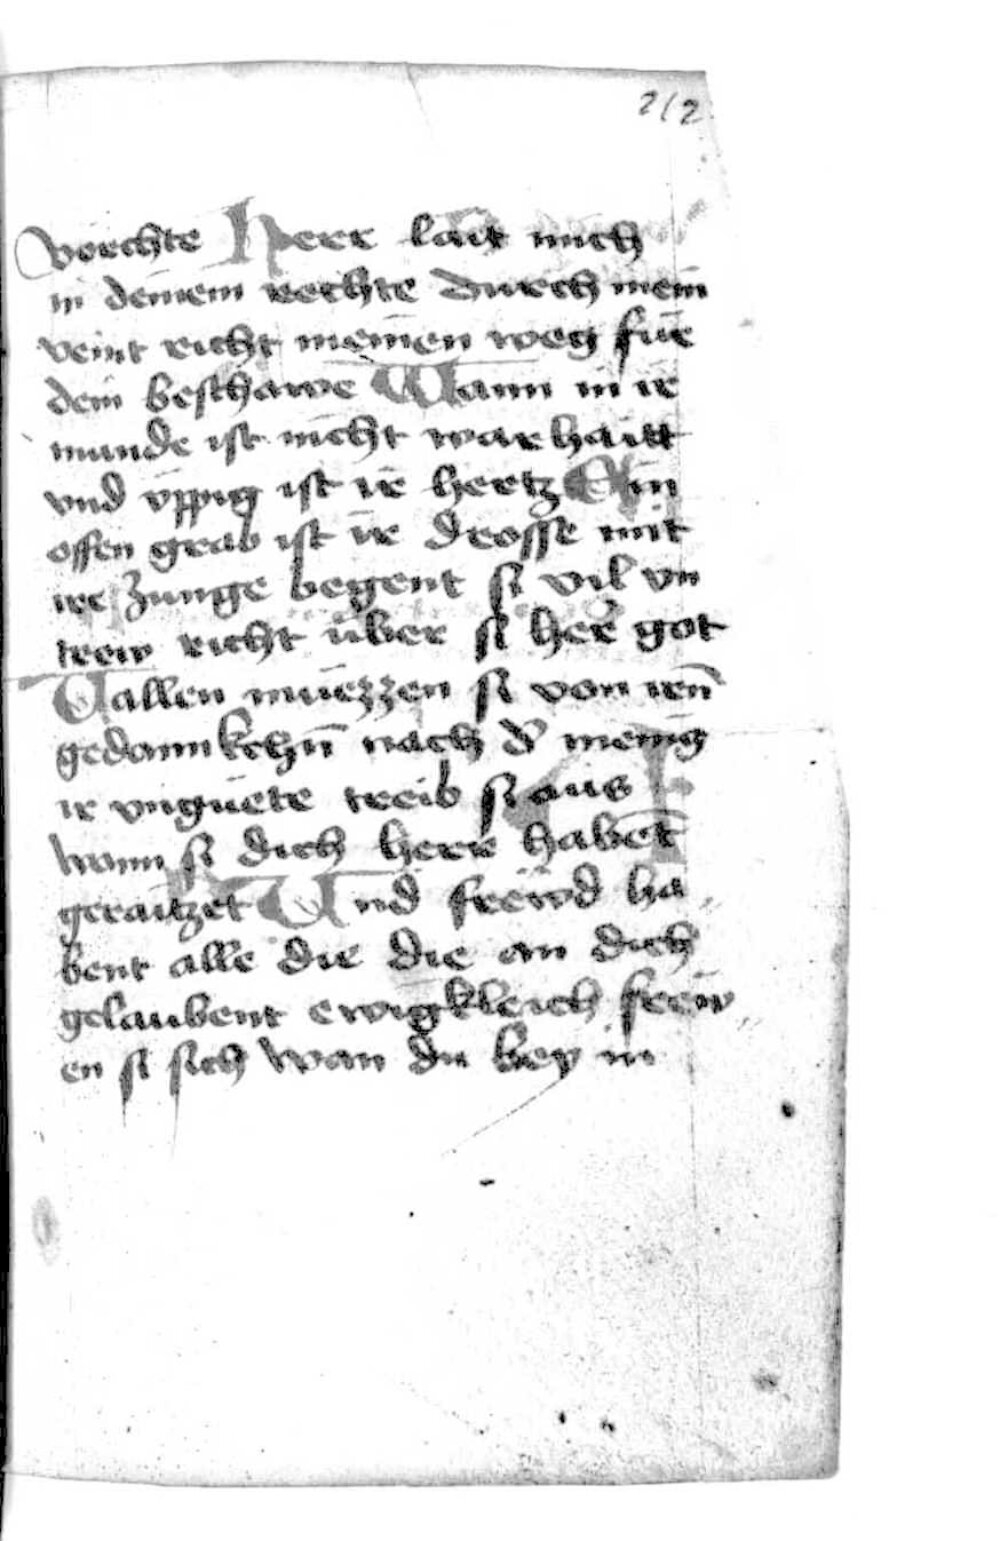 212
vorchte Herr lait mich
in deinem rechte durch mein
veint richt meinen weg für
dein beschawe Wann in ir
munde ist nicht warhaitt
vnd üppig ist ir hertz Ein
offen grab ist ir drosse mit
irr zunge begent si vil vn
trew richt über si her got
Uallen müezzen si von iren̄
gedannkchn̄ nach d' menig
ir vngüete treib si aus
wann si dich herr habent
geraitzet Und frewd ha
bent alle die die an dich
gelaubent ewigkleich frew
en si sich wan du bey in